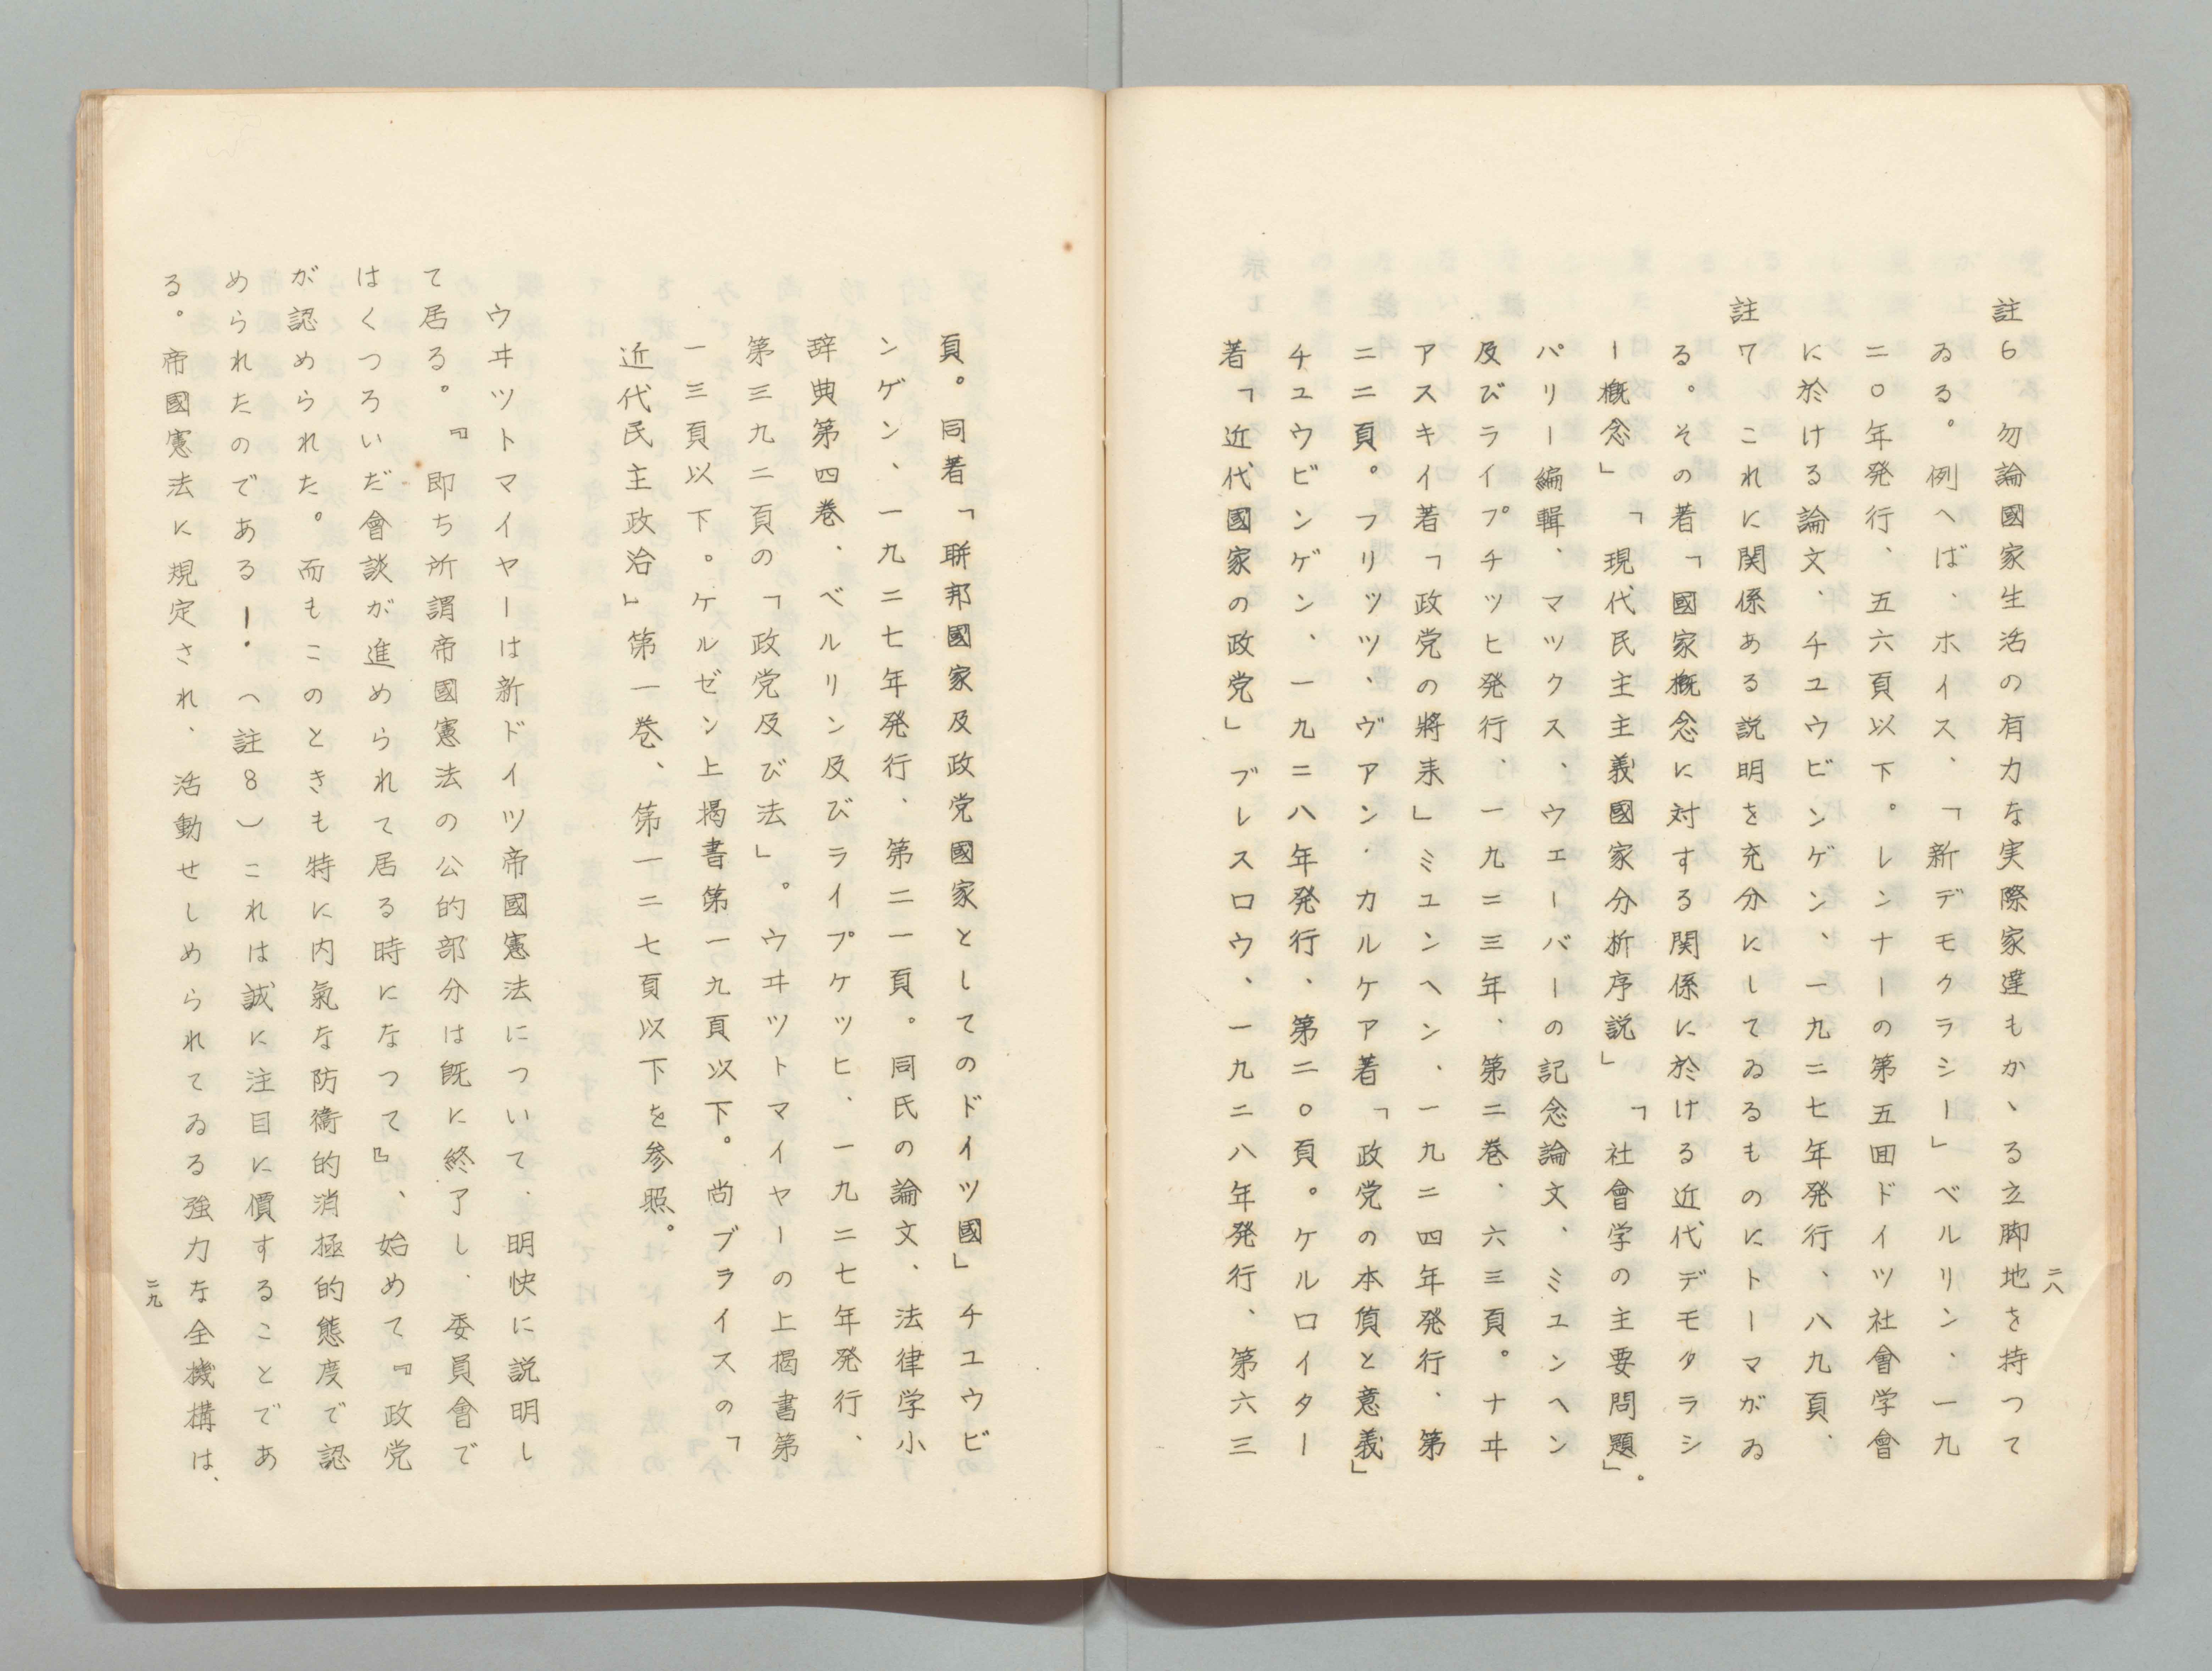 註6　勿論國家生活の有力な実際家達もかゝる立脚地を持つて
ゐる。例へば、ホイス、「新デモクラシー」ベルリン、一九
二〇年発行、五六頁以下。レンナーの第五囬ドイツ社會学會
に於ける論文、チユウビンゲン、一九二七年発行、八九頁、
註7　これに関係ある説明を充分にしてゐるものにトーマがゐ
る。その著「國家概念に対する関係に於ける近代デモクラシ
ー概念」「現代民主主義國家分析序説」「社會学の主要問題」。
パリー編輯、マツクス、ウエーバーの記念論文、ミユンヘン
及びライプチツヒ発行、一九二三年、第二巻、六三頁。ナヰ
アスキイ著「政党の將来」ミユンヘン、一九二四年発行、第
二二頁。フリツツ、ヴアン・カルケア著「政党の本質と意義」
チユウビンゲン、一九二八年発行、第二〇頁。ケルロイター
著「近代國家の政党」ブレスロウ、一九二八年発行、第六三
二八
頁。同著「聯邦國家及政党國家としてのドイツ國」チユウビ
ンゲン、一九二七年発行、第二一頁。同氏の論文、法律学小
辞典第四巻、ベルリン及びライプケツヒ、一九二七年発行、
第三九二頁の「政党及び法」。ウヰツトマイヤーの上掲書第
一三頁以下。ケルゼン上掲書第一九頁以下。尚ブライスの「
近代民主政治」第一巻、第一二七頁以下を参照。
ウヰツトマイヤーは新ドイツ帝國憲法について、明快に説明し
て居る。『即ち所謂帝國憲法の公的部分は既に終了し、委員會で
はくつろいだ會談が進められて居る時になつて』、始めて『政党
が認められた。而もこのときも特に内氣な防衞的消極的態度で認
められたのである！（註8）これは誠に注目に價することであ
る。帝國憲法に規定され、活動せしめられてゐる強力な全機構は、
二九